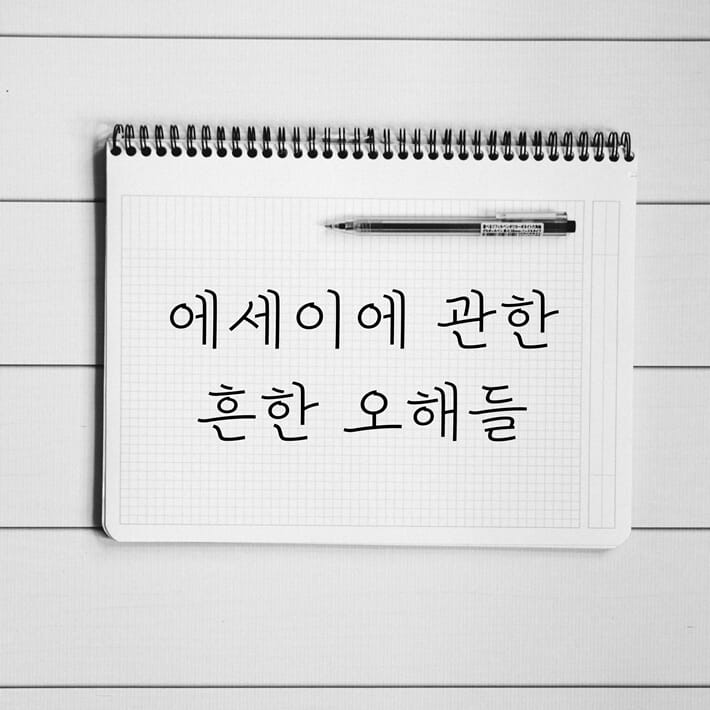 에세이에 관한
흔한 오해들